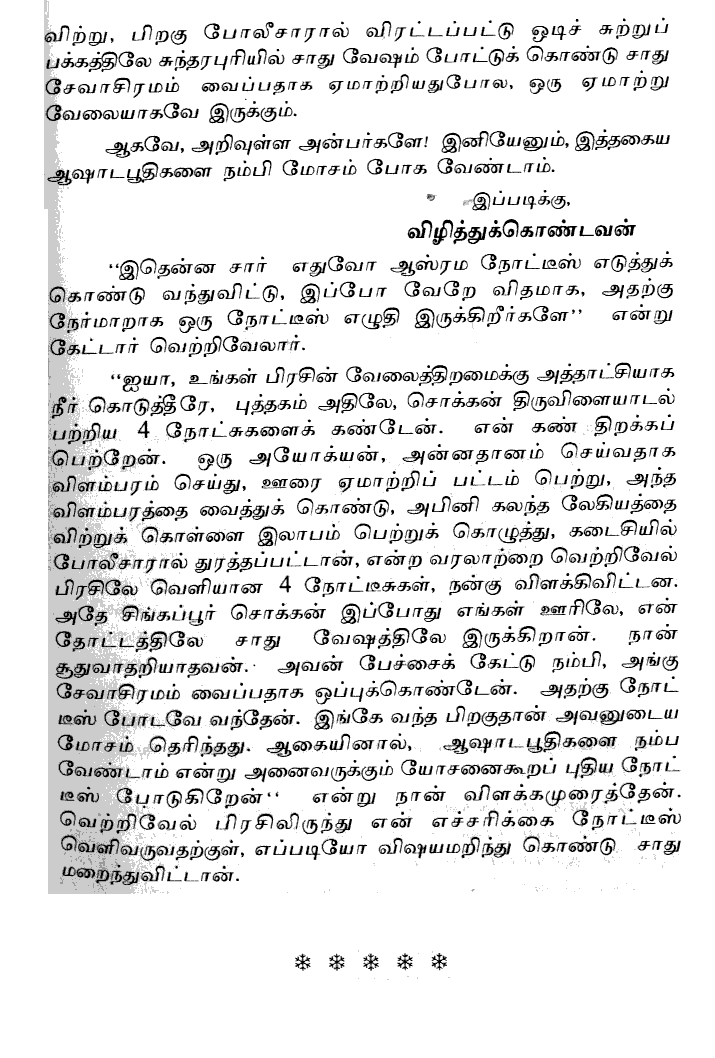 விற்று, பிறகு போலீசாரால் விரட்டப்பட்டு ஓடிச் சுற்றுப்
பக்கத்திலே சுந்தரபுரியில் சாது வேஷம் போட்டுக் கொண்டு சாது
சேவாசிரமம் வைப்பதாக ஏமாற்றியதுபோல, ஒரு ஏமாற்று
வேலையாகவே இருக்கும்.
ஆகவே, அறிவுள்ள அன்பர்களே! இனியேனும், இத்தகைய
ஆஷாடபூதிகளை நம்பி மோசம் போக வேண்டாம்.
இப்படிக்கு,
விழித்துக்கொண்டவன்
"இதென்ன சார் எதுவோ ஆஸ்ரம நோட்டீஸ் எடுத்துக்
கொண்டு வந்துவிட்டு, இப்போ வேறே விதமாக, அதற்கு
நேர்மாறாக ஒரு நோட்டீஸ் எழுதி இருக்கிறீர்களே" என்று
கேட்டார் வெற்றிவேலார்.
"ஐயா, உங்கள் பிரசின் வேலைத்திறமைக்கு அத்தாட்சியாக
நீர் கொடுத்தீரே, புத்தகம் அதிலே, சொக்கன் திருவிளையாடல்
பற்றிய 4 நோட்சுகளைக் கண்டேன். என் கண் திறக்கப்
பெற்றேன். ஒரு அயோக்யன், அன்னதானம் செய்வதாக
விளம்பரம் செய்து, ஊரை ஏமாற்றிப் பட்டம் பெற்று, அந்த
விளம்பரத்தை வைத்துக் கொண்டு, அபினி கலந்த லேகியத்தை
விற்றுக் கொள்ளை இலாபம் பெற்றுக் கொழுத்து, கடைசியில்
போலீசாரால் துரத்தப்பட்டான், என்ற வரலாற்றை வெற்றிவேல்
பிரசிலே வெளியான 4 நோட்டீசுகள், நன்கு விளக்கிவிட்டன.
அதே சிங்கப்பூர் சொக்கன் இப்போது எங்கள் ஊரிலே, என்
தோட்டத்திலே சாது வேஷத்திலே இருக்கிறான். நான்
சூதுவாதறியாதவன். அவன் பேச்சைக் கேட்டு நம்பி, அங்கு
சேவாசிரமம் வைப்பதாக ஒப்புக்கொண்டேன். அதற்கு நோட்
டீஸ் போடவே வந்தேன். இங்கே வந்த பிறகுதான் அவனுடைய
மோசம் தெரிந்தது. ஆகையினால், ஆஷாடபூதிகளை நம்ப
வேண்டாம் என்று அனைவருக்கும் யோசனைகூறப் புதிய நோட்
டீஸ் போடுகிறேன்" என்று நான் விளக்கமுரைத்தேன்.
வெற்றிவேல் பிரசிலிருந்து என் எச்சரிக்கை நோட்டீஸ்
வெளிவருவதற்குள், எப்படியோ விஷயமறிந்து கொண்டு சாது
மறைந்துவிட்டான்.
❄ ❄ ❄ ❄ ❄